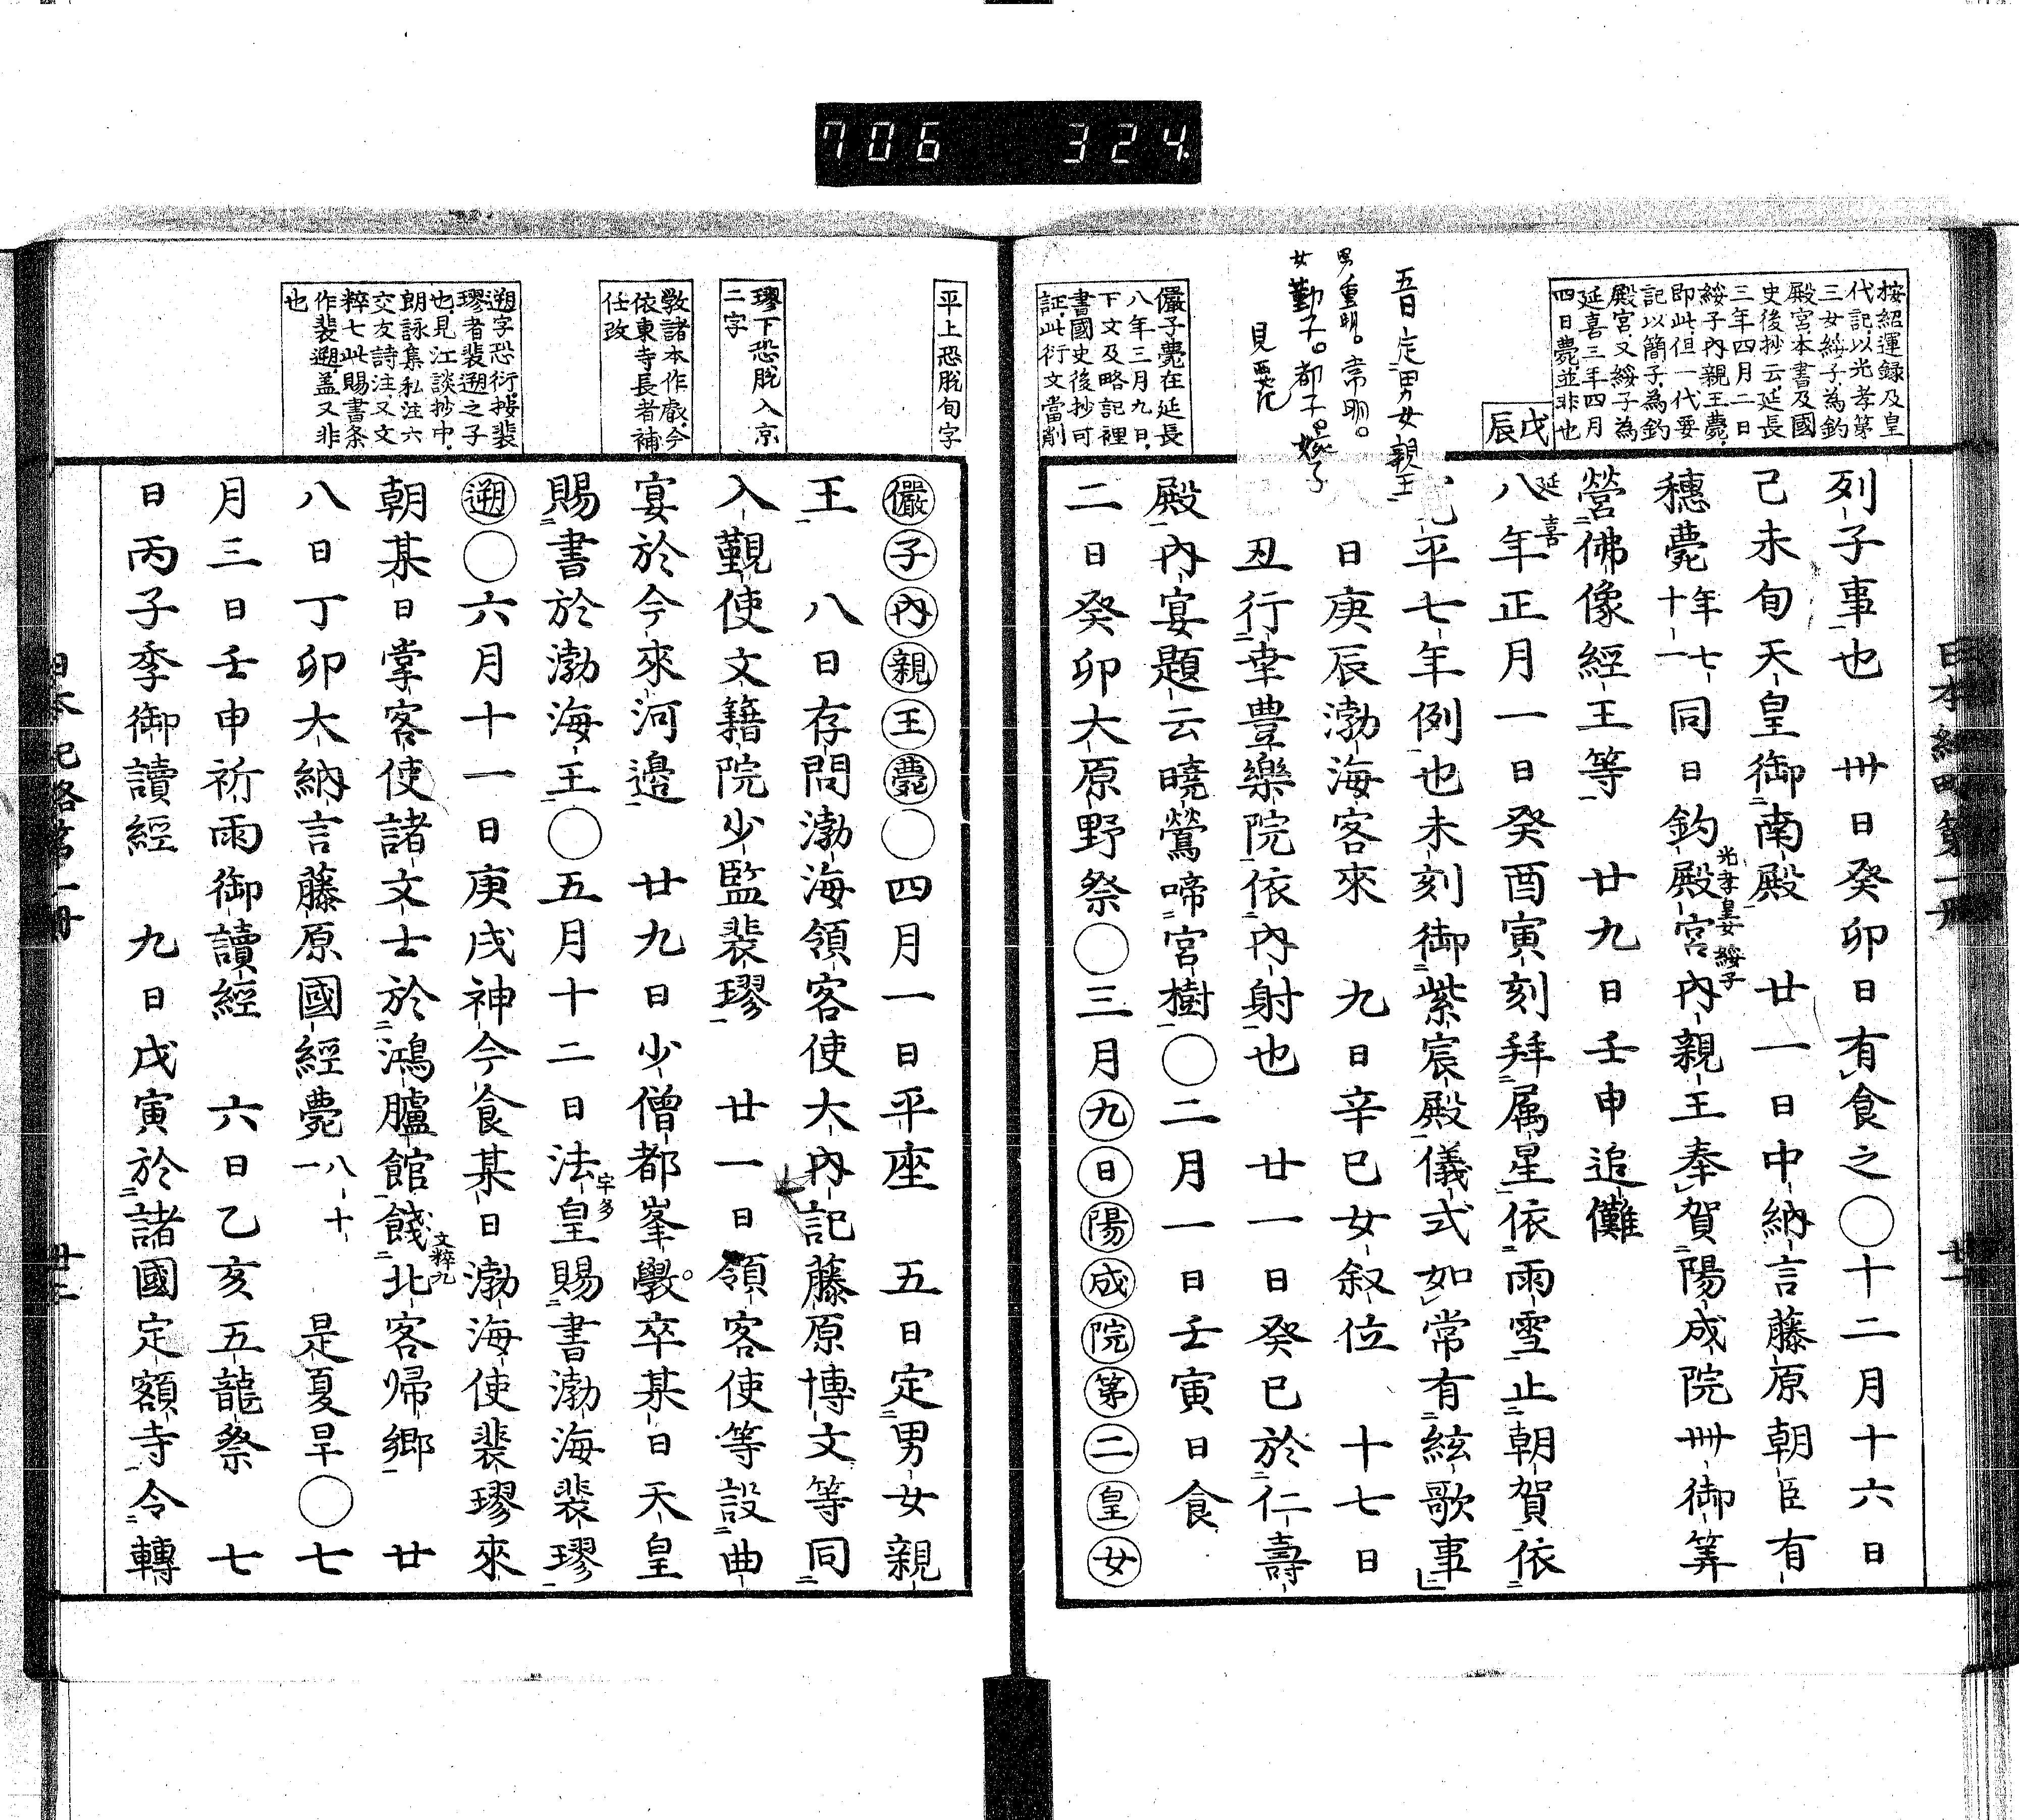 706 324
按紹運録及皇
代記以光孝第
三女綏子為釣
殿宮本書及國
史後抄云延長
三年四月二日
綏子内親王薨
即此但一代要
記以簡子為釣
殿宮又綏子為
延喜三年四月
四日薨並非也
戊
辰
五日定男女親王
男重明。常明。
女勤子。都子。
儼子薨在延長
八年三月九日
下文及略記裡
書國史後抄可
証此衍文當削
列子事也　卅日癸卯日有食之○十二月十六日
己未旬天皇御南殿　廿一日中納言藤原朝臣有
穗薨年七十一同日釣殿宮内親王奉賀陽成院卌御筭
光孝皇女綏子
營佛像經王等　廿九日壬申追儺
八年正月一日癸酉寅刻拜属星依雨雪止朝賀依
延喜
平七年例也未刻御紫宸殿儀式如常有絃歌事
日庚辰渤海客來　九日辛巳女叙位　十七日
丑行幸豊樂院依内射也　廿一日癸巳於仁壽
殿内宴題云曉鶯啼宮樹○二月一日壬寅日食
二日癸卯大原野祭○三月九日陽成院第二皇女
日本紀略第一冊
平上恐脱旬字
璆下恐脱入京
二字
斅諸本作戯今
依東寺長者補
任改
遡字恐衍按裴
璆者裴遡之子
也見江談抄中
朗詠集私注六
交友詩注又文
粹七此賜書条
作裴遡蓋又非
也
儼子内親王薨○四月一日平座　五日定男女親
王　八日存問渤海領客使大内記藤原博文等同
入覲使文籍院少監裴璆　廿一日領客使等設曲
宴於今來河邉　廿九日少僧都峯斅卒某日天皇
賜書於渤海王○五月十二日法皇賜書渤海裴璆
宇多
遡○六月十一日庚戌神今食某日渤海使裴璆來
朝某日掌客使諸文士於鴻臚館餞北客帰郷　廿
文粹九
八日丁卯大納言藤原國經薨八十一　是夏旱○七
月三日壬申祈雨御讀經　六日乙亥五龍祭　七
日丙子季御讀經　九日戊寅於諸國定額寺令轉